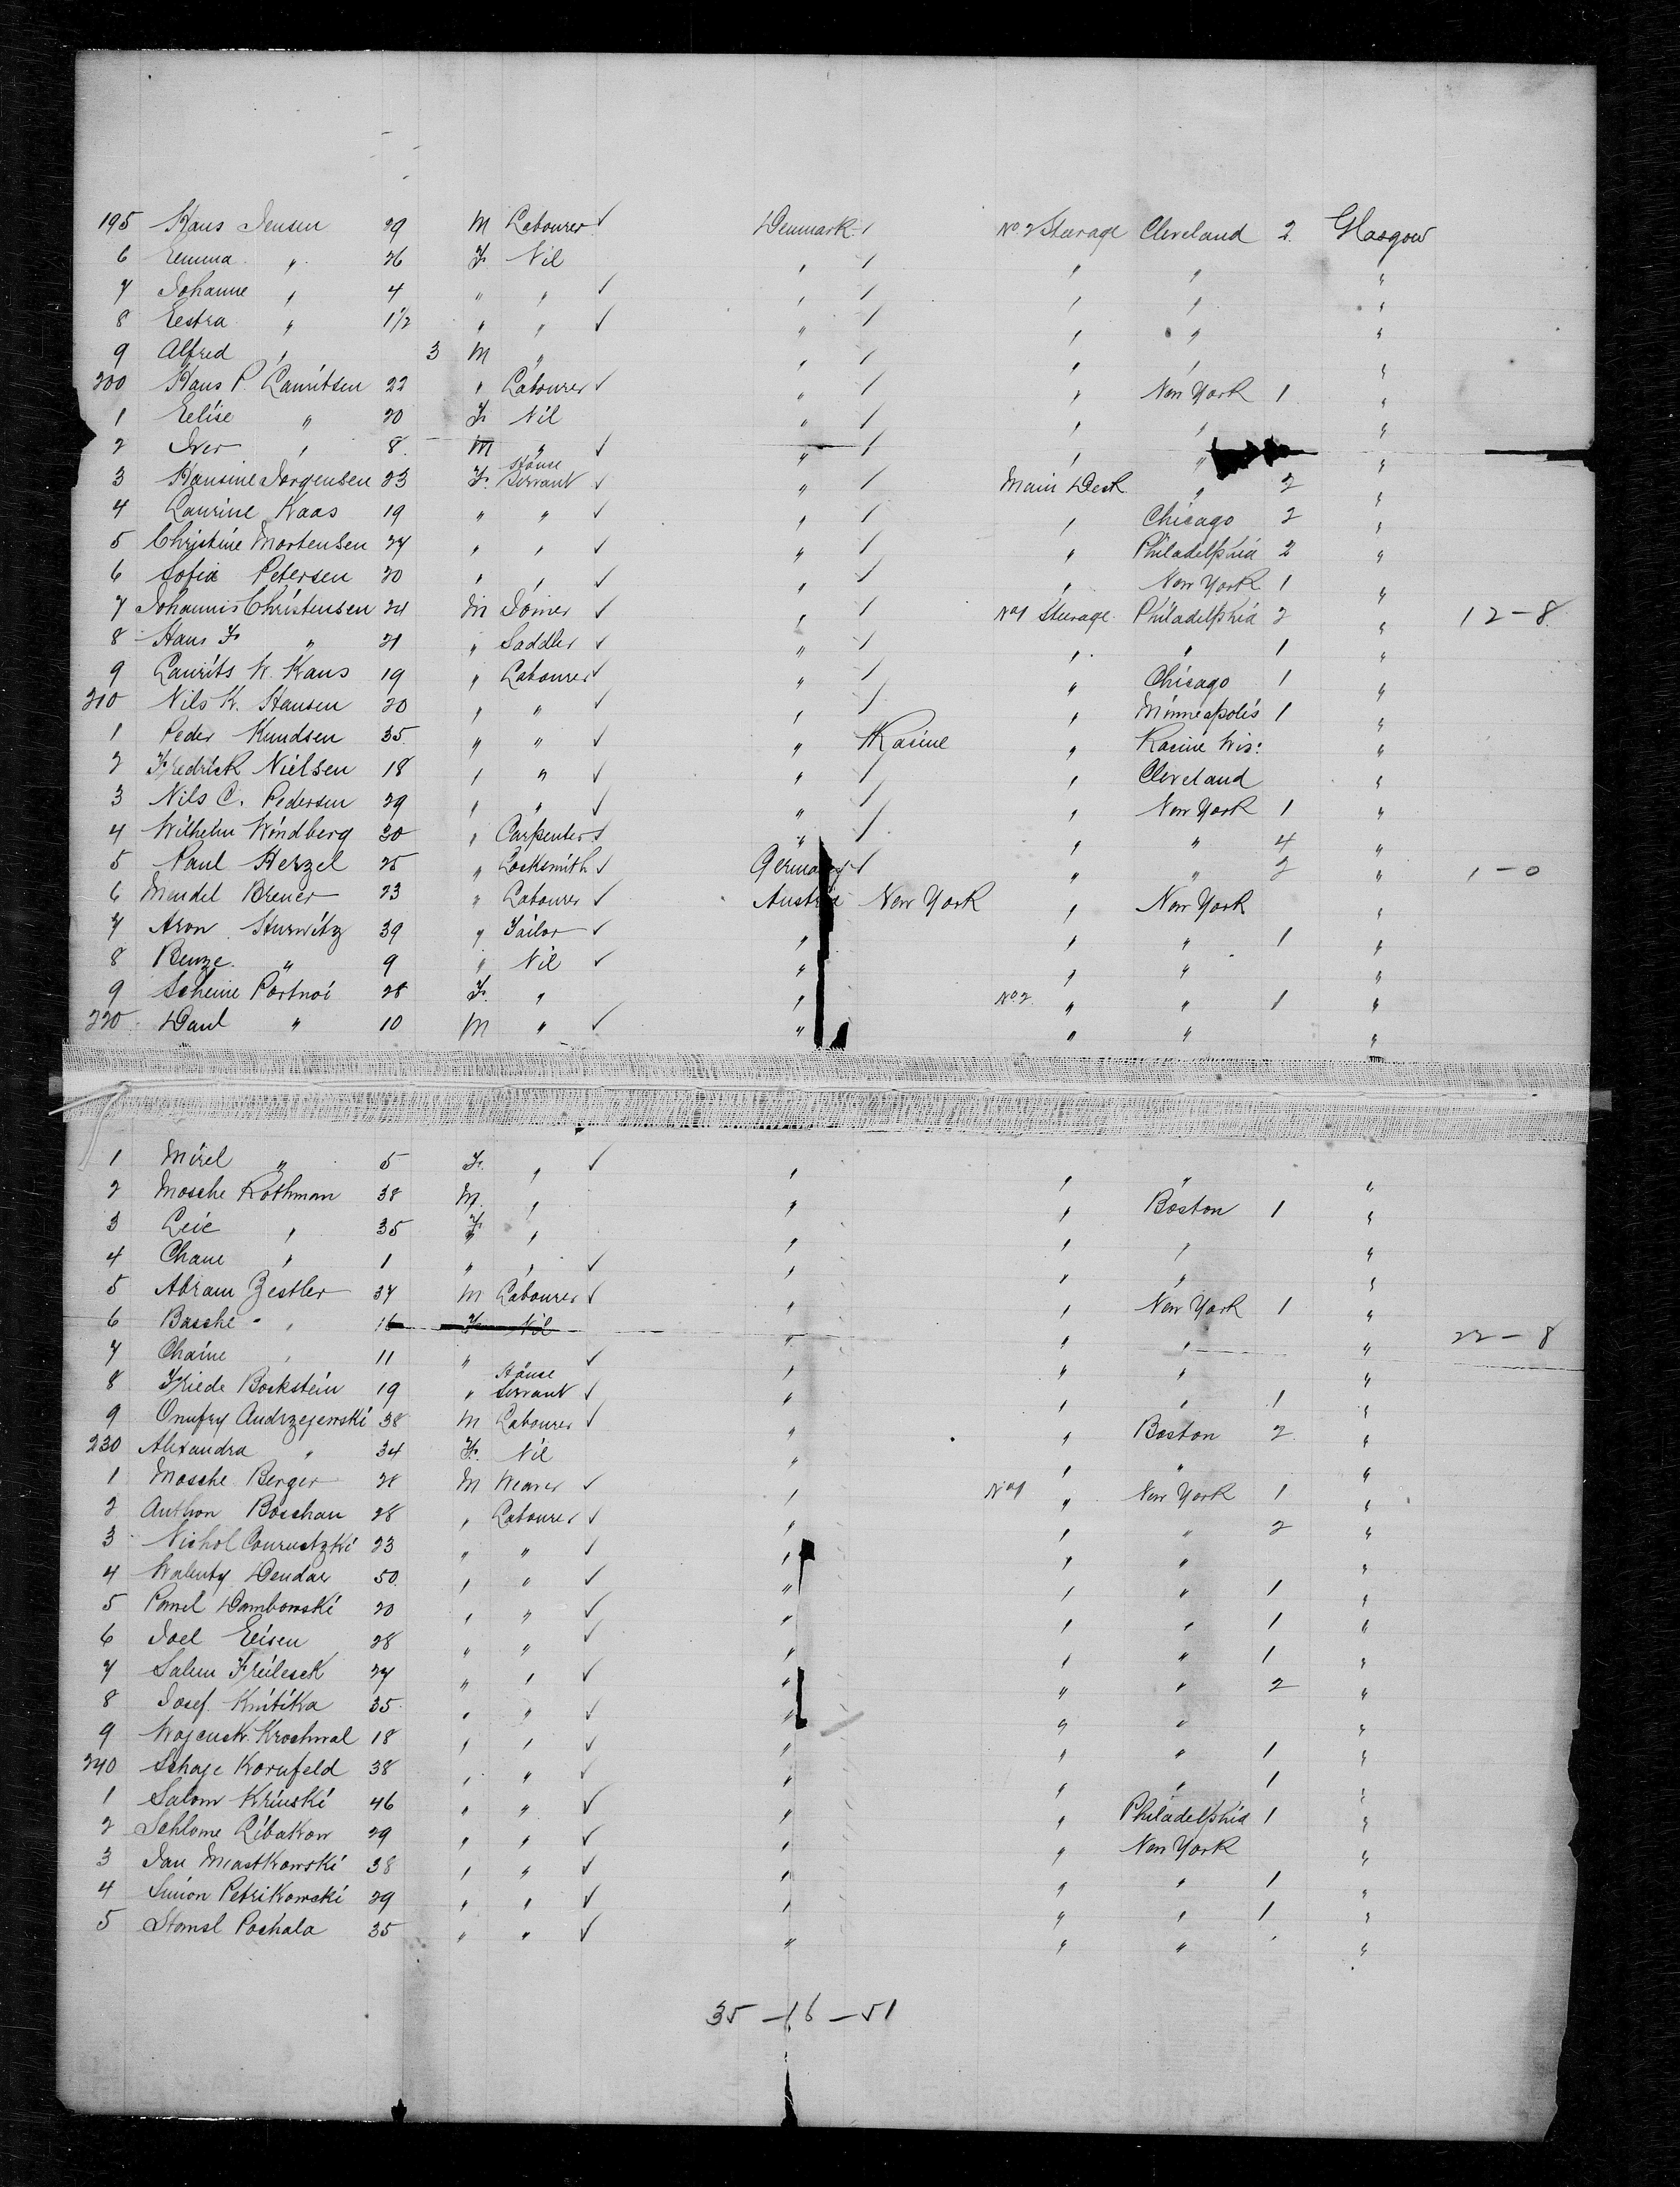 195 Hans Jensen 29 M Labourer ✓ Denmark ✓ No. 2 Steerage Cleveland 2. Glasgow
6 Emma " 26 F. Nil " ✓ " " "
7 Johanne " 4 " " ✓ " ✓ " " "
8 Eestra " 1½ " " ✓ " ✓ " " "
9 Alfred " 3 M " " ✓ " " "
200 Hans P. Lauritsen 22 " Labourer ✓ " ✓ " New York 1 "
1 Eelise " 20 F. Nil " ✓ " " "
2 Iver " 8. M " ✓ " ✓ " " "
3 Hansine Jorgensen 23 F. House Servant ✓ " ✓ Main Deck " 2 "
4 Laurine Kaas 19 " " ✓ " ✓ " Chicago 2 "
5 Christine Mortensen 27 " " ✓ " ✓ " Philadelphia 2 "
6 Sofia Petersen 20 " " ✓ " ✓ " New York 1 "
7 Johannis Christensen 24 M Joiner ✓ " ✓ No 1 Steerage Philadelphia 2 " 12 - 8
8 Hans F. " 21 " Saddler ✓ " ✓ " " 1 "
9 Laurits W. Kaus 19 " Labourer ✓ " ✓ " Chicago 1 "
210 Nils K. Hansen 20 " " ✓ " ✓ " Minneapolis 1 "
1 Peder Knudsen 35 " " ✓ " Racine " Racine Wis: "
2 Fredrick Nielsen 18 " " ✓ " ✓ " Cleveland "
3 Nils C. Pedersen 29 " " ✓ " ✓ " New York 1 "
4 Wilhelm Windberg 30 " Carpenter ✓ " ✓ " " 4 "
5 Paul Herzel 25 " Locksmith ✓ Germany ✓ " " 2 " 1 - 0
6 Mendel Brener 23 " Labourer ✓ Austria New York " New York "
7 Aron Hurwitz 39 " Tailor ✓ " " " 1 "
8 Benze " 9 " Nil ✓ " " " "
9 Scheine Portnoi 28 F. " " No. 2 " " 1 "
220 Daul " 10 M " ✓ " " " "
1 Mirel " 5 F. " ✓ " " " "
2 Mosche Rothman 38 M. " " " Boston 1 "
3 Leie " 35 F. " " " " "
4 Chane " 1 " " ✓ " " " "
5 Abram Zestler 37 M Labourer ✓ " " New York 1 "
6 Basche " 16 F. Nil " " " " 22 - 8
7 Chaine " 11 " ✓ " " " "
8 Friede Bockstein 19 " House Servant ✓ " " " 1 "
9 Onufry Andrzejewski 38 M Labourer ✓ " " Boston 2. "
230 Alexandra " 34 F. Nil " " " "
1 Mosche Berger 28 M Weaver ✓ " No 1 " New York 1 "
2 Anthon Boschan 28 " Labourer ✓ " " " 2 "
3 Nichol 23 " " ✓ " " " "
4 Walenty Dendar 50 " " ✓ " " " 1 "
5 Pawel Dombowski 20 " " ✓ " " " 1 "
6 Joel Eisen 28 " " ✓ " " " 1 "
7 Salem 27 " " ✓ " " " 2 "
8 Josef Knitika 35 " " ✓ " " " "
9 Krochmal 18 " " ✓ " " " 1 "
240 Schaje Kornfeld 38 " " ✓ " " " 1 "
1 Salom Krinski 46 " " ✓ " " Philadelphia 1 "
2 Schlome Libakow 29 " " ✓ " " New York "
3 Jan Miastkowski 38 " " ✓ " " " 1 "
4 Simon Petrikowski 29 " " ✓ " " " 1 "
5 Stomsl Pochala 35 " " ✓ " " " "
35 - 16 - 51